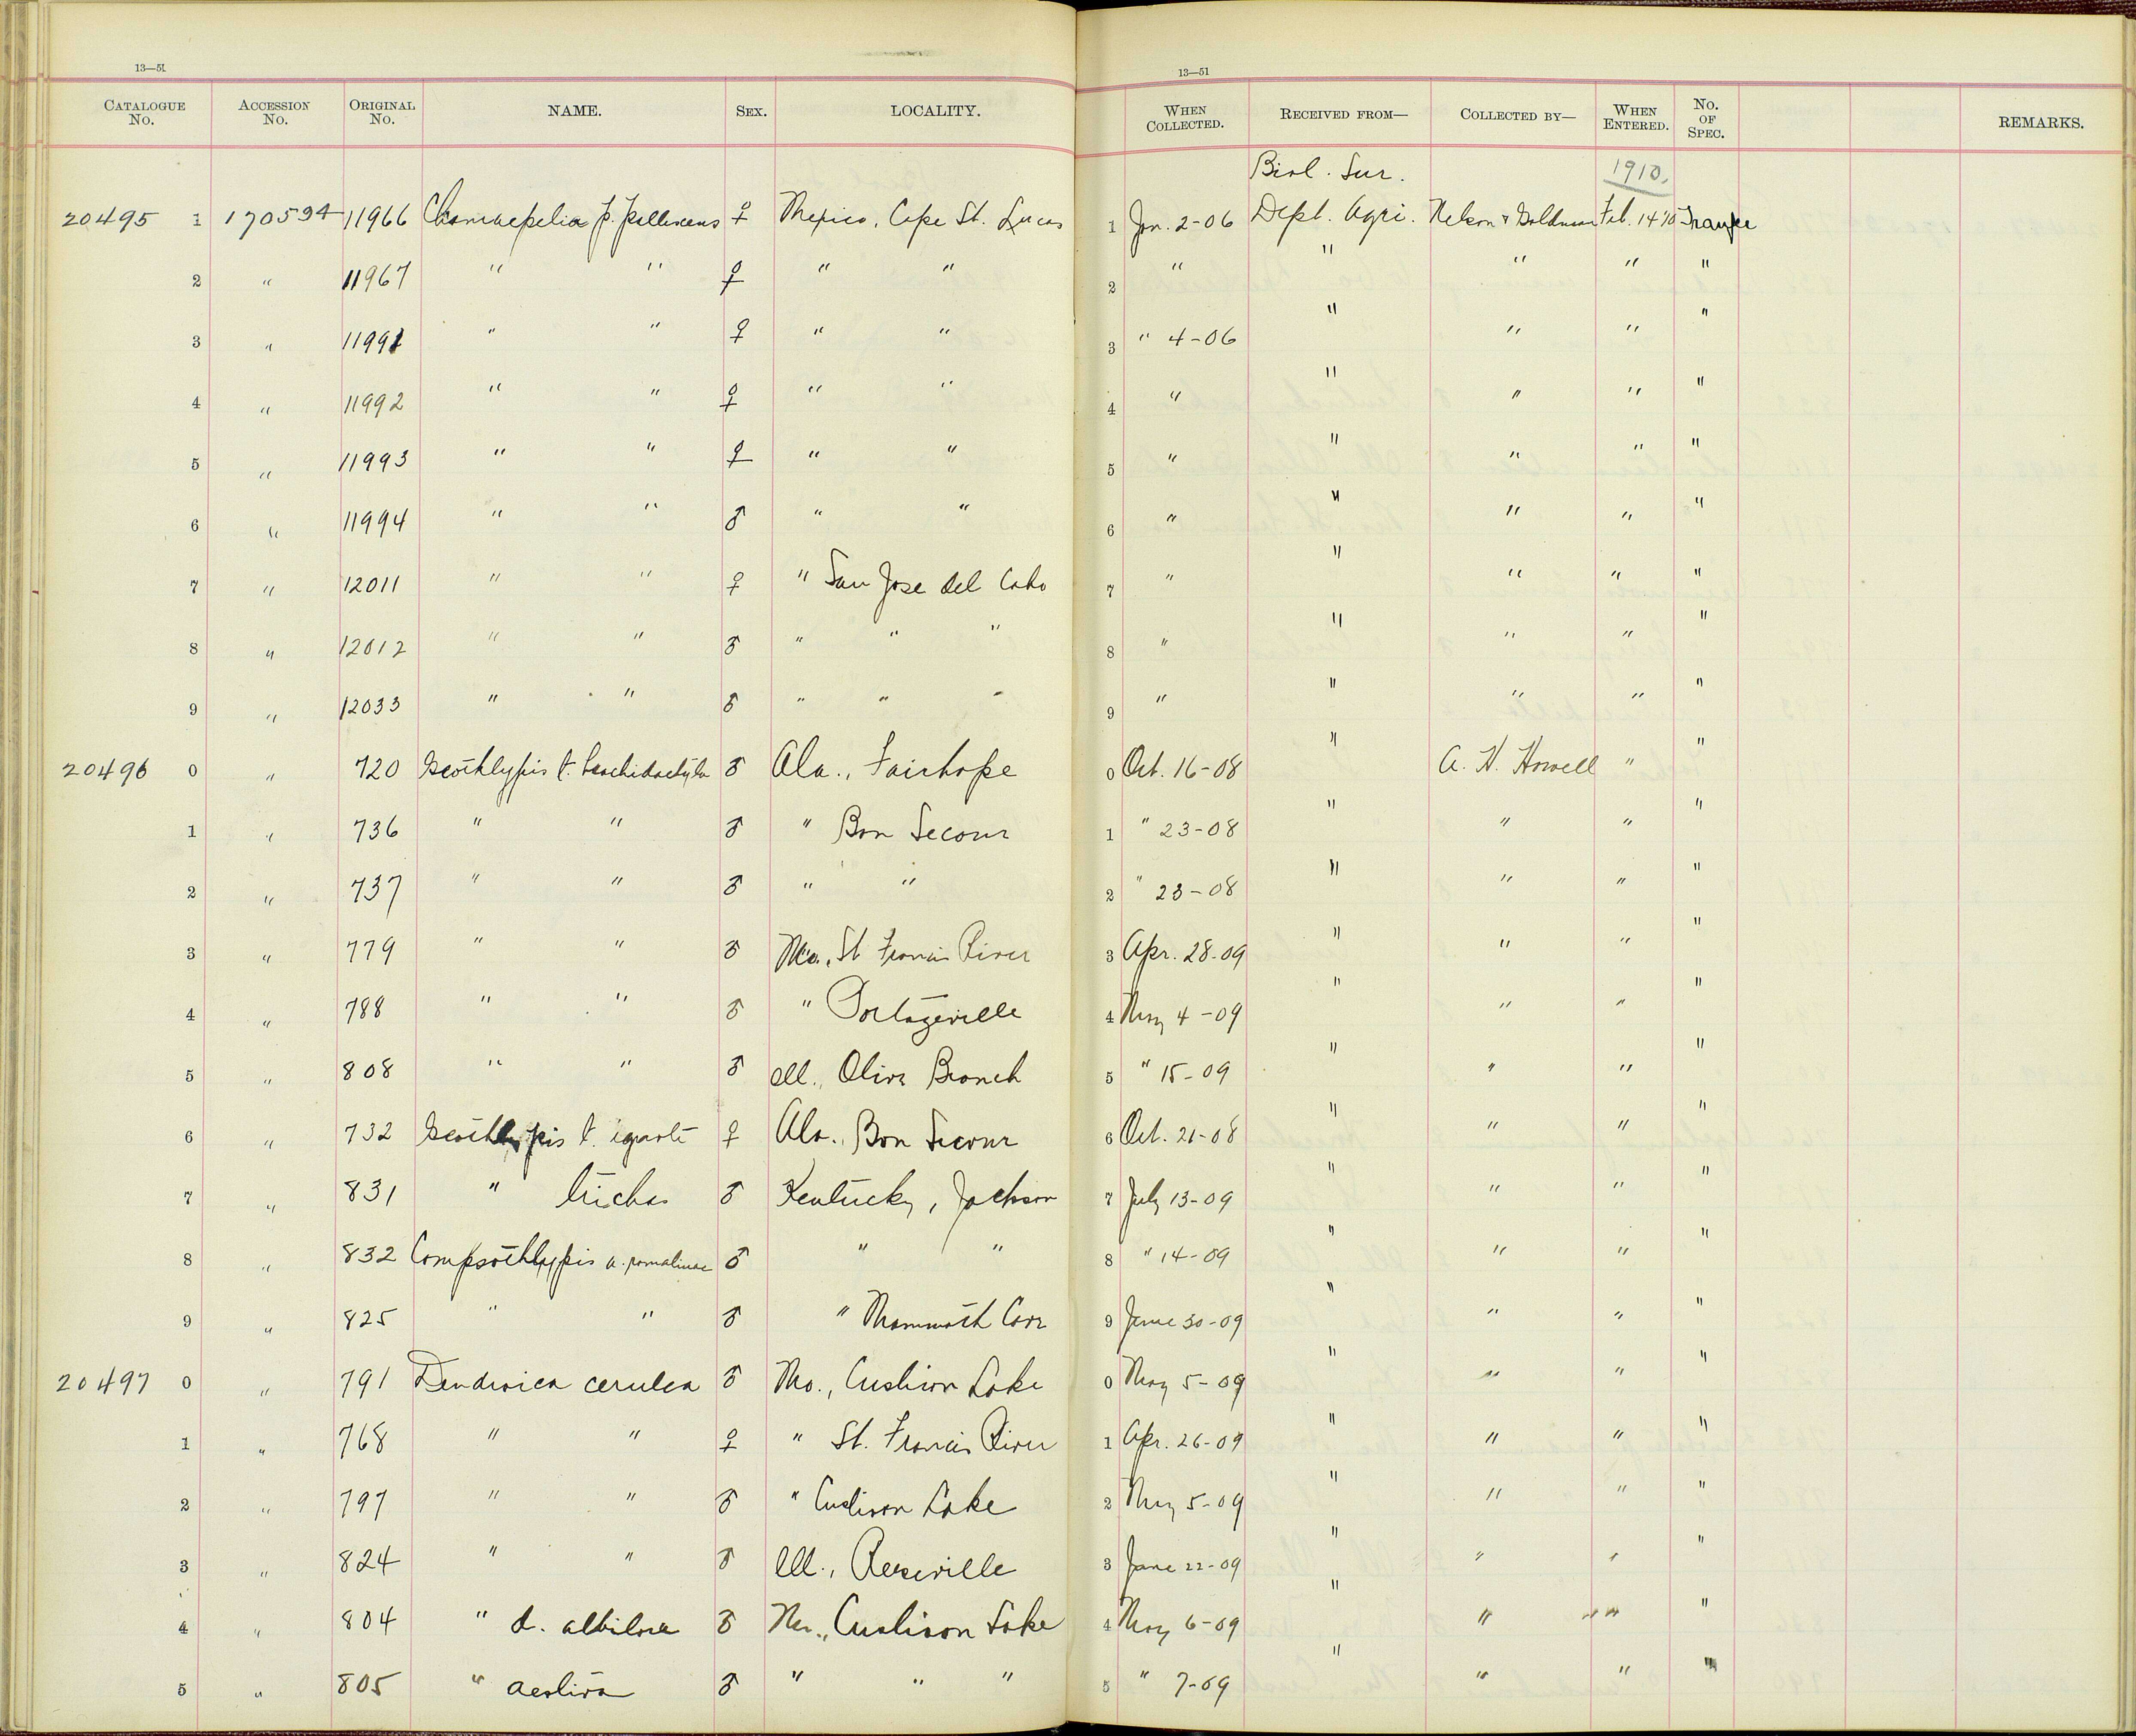 13—51 13—51
CATALOGUE No. ACCESSION No. ORIGINAL No. NAME. SEX. LOCALITY. WHEN COLLECTED. RECEIVED FROM— COLLECTED BY— WHEN ENTERED. No. OF SPEC. REMARKS.
Biol. Sur. 1910.
20495 1 170534 11966 Chamaepelia p. pallescens ♀ Mexico, Cape St. Lucas 1 Jan. 2-06 Dept. Agri. Nelson & Goldman Feb. 14 10
2 " 11967 " " ♀ " " 2 " " " " "
3 " 11991 " " ♀ " " 3 " 4-06 " " " "
4 " 11992 " " ♀ " " 4 " " " " "
5 " 11993 " " ♀ " " 5 " " " " "
6 " 11994 " " ♂ " " 6 " " " " "
7 " 12011 " " ♀ " San Jose del Cabo 7 " " " " "
8 " 12012 " " ♂ " " " 8 " " " " "
9 " 12033 " " ♂ " " " 9 " " " " "
20496 0 " 720 Geothlypis t. brachidactyla ♂ Ala., Fairhope 0 Oct. 16-08 " A. H. Howell " "
1 " 736 " " ♂ " Bon Secour 1 " 23-08 " " " "
2 " 737 " " ♂ " " 2 " 23-08 " " " "
3 " 779 " " ♂ Mo., St Francis River 3 Apr. 28-09 " " " "
4 " 788 " " ♂ " Portageville 4 May 4-09 " " " "
5 " 808 " " ♂ Ill., Olive Branch 5 " 15-09 " " " "
6 " 732 Geothlypis t. ignota ♀ Ala., Bon Secour 6 Oct. 21-08 " " " "
7 " 831 " trichas ♂ Kentucky, Jackson 7 July 13-09 " " " "
8 " 832 Compsothlypis a. ramalinae ♂ " " 8 " 14-09 " " " "
9 " 825 " " ♂ " Mammoth Cave 9 June 30-09 " " " "
20497 0 " 791 Dendroica cerulea ♂ Mo., Cushion Lake 0 May 5-09 " " " "
1 " 768 " " ♀ " St. Francis River 1 Apr. 26-09 " " " "
2 " 797 " " ♂ " Cushion Lake 2 May 5-09 " " " "
3 " 824 " " ♂ Ill., Reevesville 3 June 22-09 " " " "
4 " 804 " d. albilora ♂ Mo., Cushion Lake 4 May 6-09 " " " "
5 " 805 " aestiva ♂ " " " 5 " 7-09 " " " "